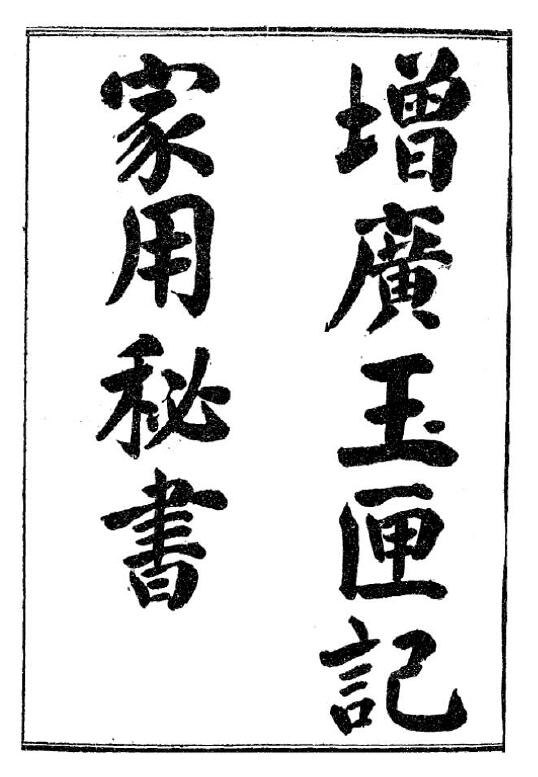 增廣玉匣記
家用秘書